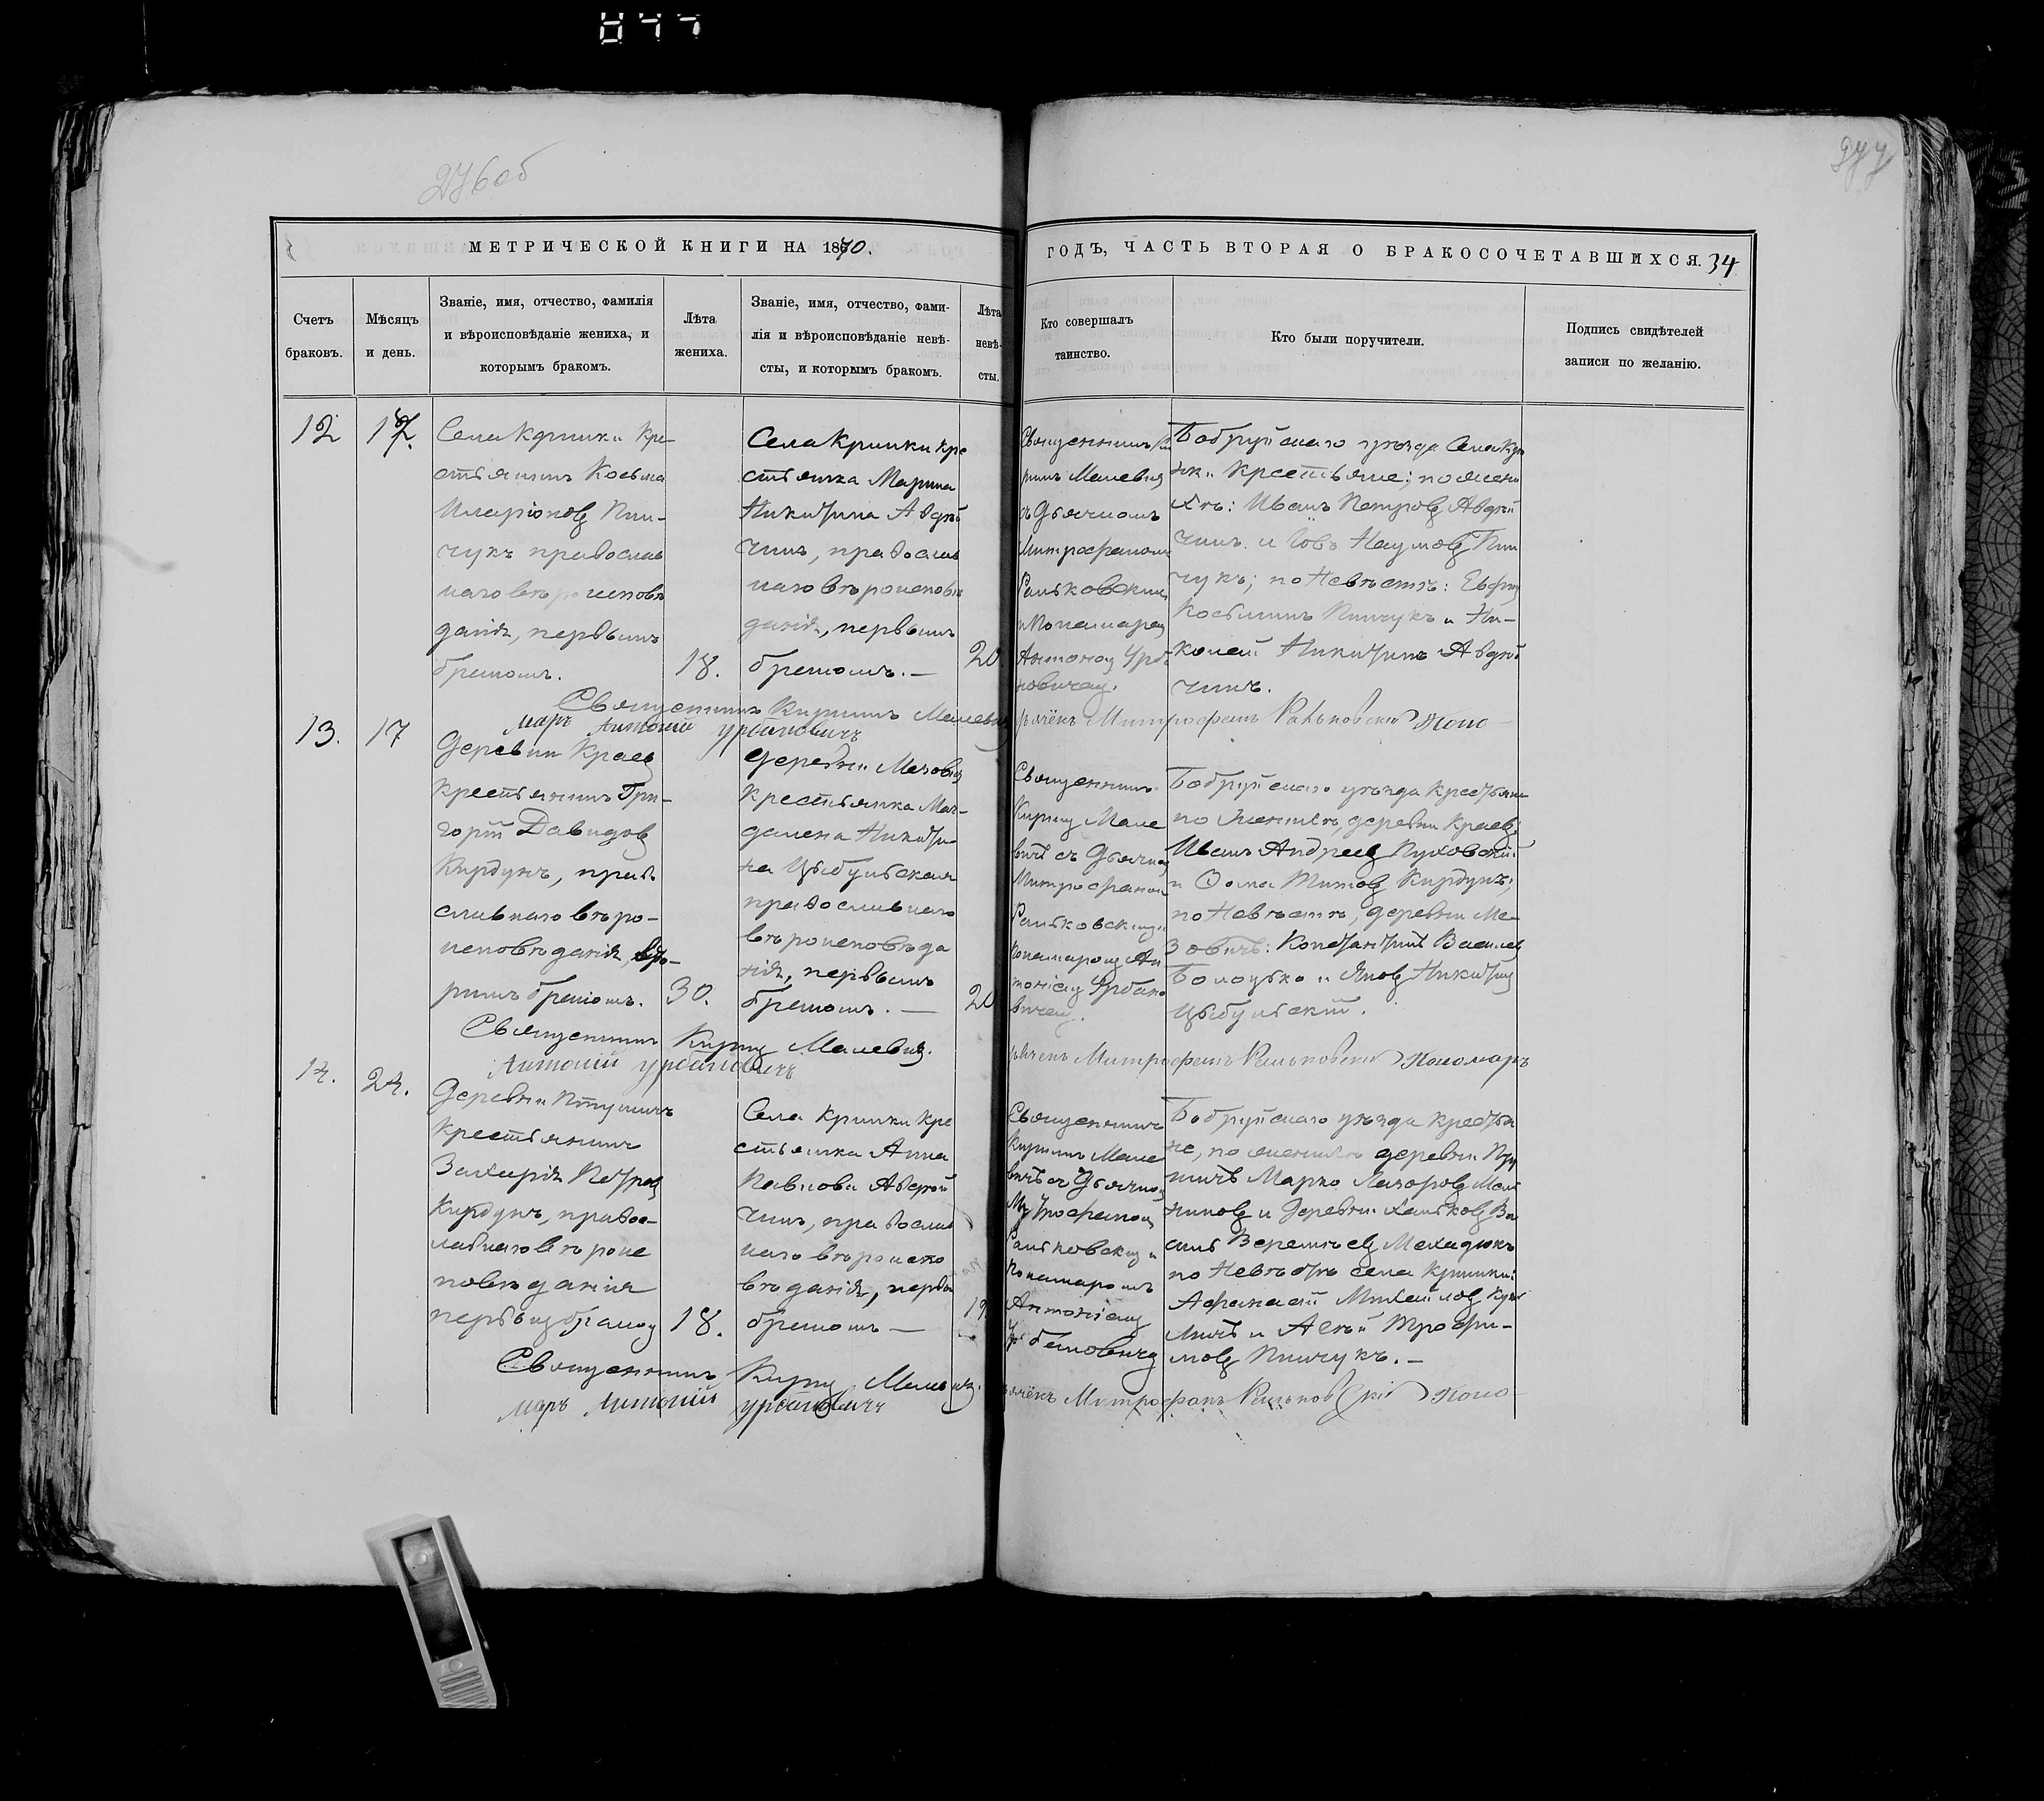 877
276об
277
МЕТРИЧЕСКОЙ КНИГИ НА 1870.
ГОДЪ, ЧАСТЬ ВТОРАЯ О БРАКОСОЧЕТАВШИХСЯ. 34
Счетъ браковъ.
Мѣсяцъ и день.
Званіе, имя, отчество, фамилія
и вѣроисповѣданіе жениха, и
которымъ бракомъ.
Лѣта жениха.
Званіе, имя, отчество, фами-
лія и вѣроисповѣданіе невѣ-
сты, и которымъ бракомъ.
Лѣта невѣ-
сты.
Кто совершалъ
таинство.
Кто были поручители.
Подпись свидѣтелей
записи по желанію.
12
17.
Села Кринки Кре-
стьянинъ Косьма
Иларіоновъ Пин-
чукъ православ
наго вѣроисповѣ
данія, первымъ
бракомъ.
18.
Села Кринки кре
стьянка Марина
Никитина Авдѣй
чикъ, православ
наго вѣроисповѣ
данія, первымъ
бракомъ. —
20
Священникъ Ки
рилъ Малевич
съ Дьячкомъ
Митрофаномъ
Раньковским
и Понамаремъ
Антоніемъ Урба
новичемъ.
Бобруйскаго уѣзда Села Кри
нки Крестьяне; по жени
хѣ: Иванъ Петровъ Авдѣй
чикъ и Іовъ Наумовъ Пин
чукъ; по Невѣстѣ: Ефимъ
Косьминъ Пинчукъ и Ни-
колай Никитинъ Авдѣй
чикъ.
Священникъ Кирилъ Малевич дьячёкъ Митрофанъ Раньковскій Поно
марь Антоній Урбановичъ
13.
17
Деревни Краевъ
Крестьянинъ Гри-
горій Давидовъ
Кирдунъ, право
славнаго вѣро-
исповѣданія, вто-
рымъ бракомъ.
30.
Деревни Мезовичъ
Крестьянка Маг-
далена Никити-
на Цыбульская
православнаго
вѣроисповѣда
нія, первымъ
бракомъ. —
20
Священникъ
Кирилъ Мале
вичъ съ Дьячкомъ
Митрофаномъ
Раньковскимъ и
Понамаремъ Ан
тоніемъ Урбано
вичемъ.
Бобруйскаго уѣзда Крестьяне
по Женихѣ, деревни Краевъ:
Иванъ Андреевъ Пуховскій
и Ѳома Титовъ Кирдунъ;
по Невѣстѣ, деревни Ме-
зовичъ: Константинъ Васильевъ
Болоцько и Яковъ Никитинъ
Цыбульскій.
Священникъ Кирилъ Малевич. дьячекъ Митрофанъ Раньковскій Пономарь
Антоній Урбановичъ
14.
24.
Деревни Птушичъ
Крестьянинъ
Захарій Петровъ
Кирдунъ, правос-
лавнаго вѣроис
повѣданія
первымъ бракомъ
18.
Села Кринки Кре
стьянка Анна
Павлова Авдѣй
чикъ, православ
наго вѣроиспо
вѣданія, первым
бракомъ —
19
Священникъ
Кирилъ Мале
вичъ съ Дьячкомъ
Митрофаномъ
Раньковскимъ и
Понамаромъ
Антоніемъ
Урбановичемъ
Бобруйскаго уѣзда Крестья
не, по женихѣ деревни Пту
шичъ Марко Лазаревъ
и Деревни Ва
силь Веремѣевъ
по Невѣстѣ села Кринки:
Афанасій Михайловъ
и Алексѣй Трофи-
мовъ Пинчукъ. —
Священникъ Кирилъ Малевич. дьячёкъ Митрофанъ Раньковскій Поно
марь Антоній Урбановичъ